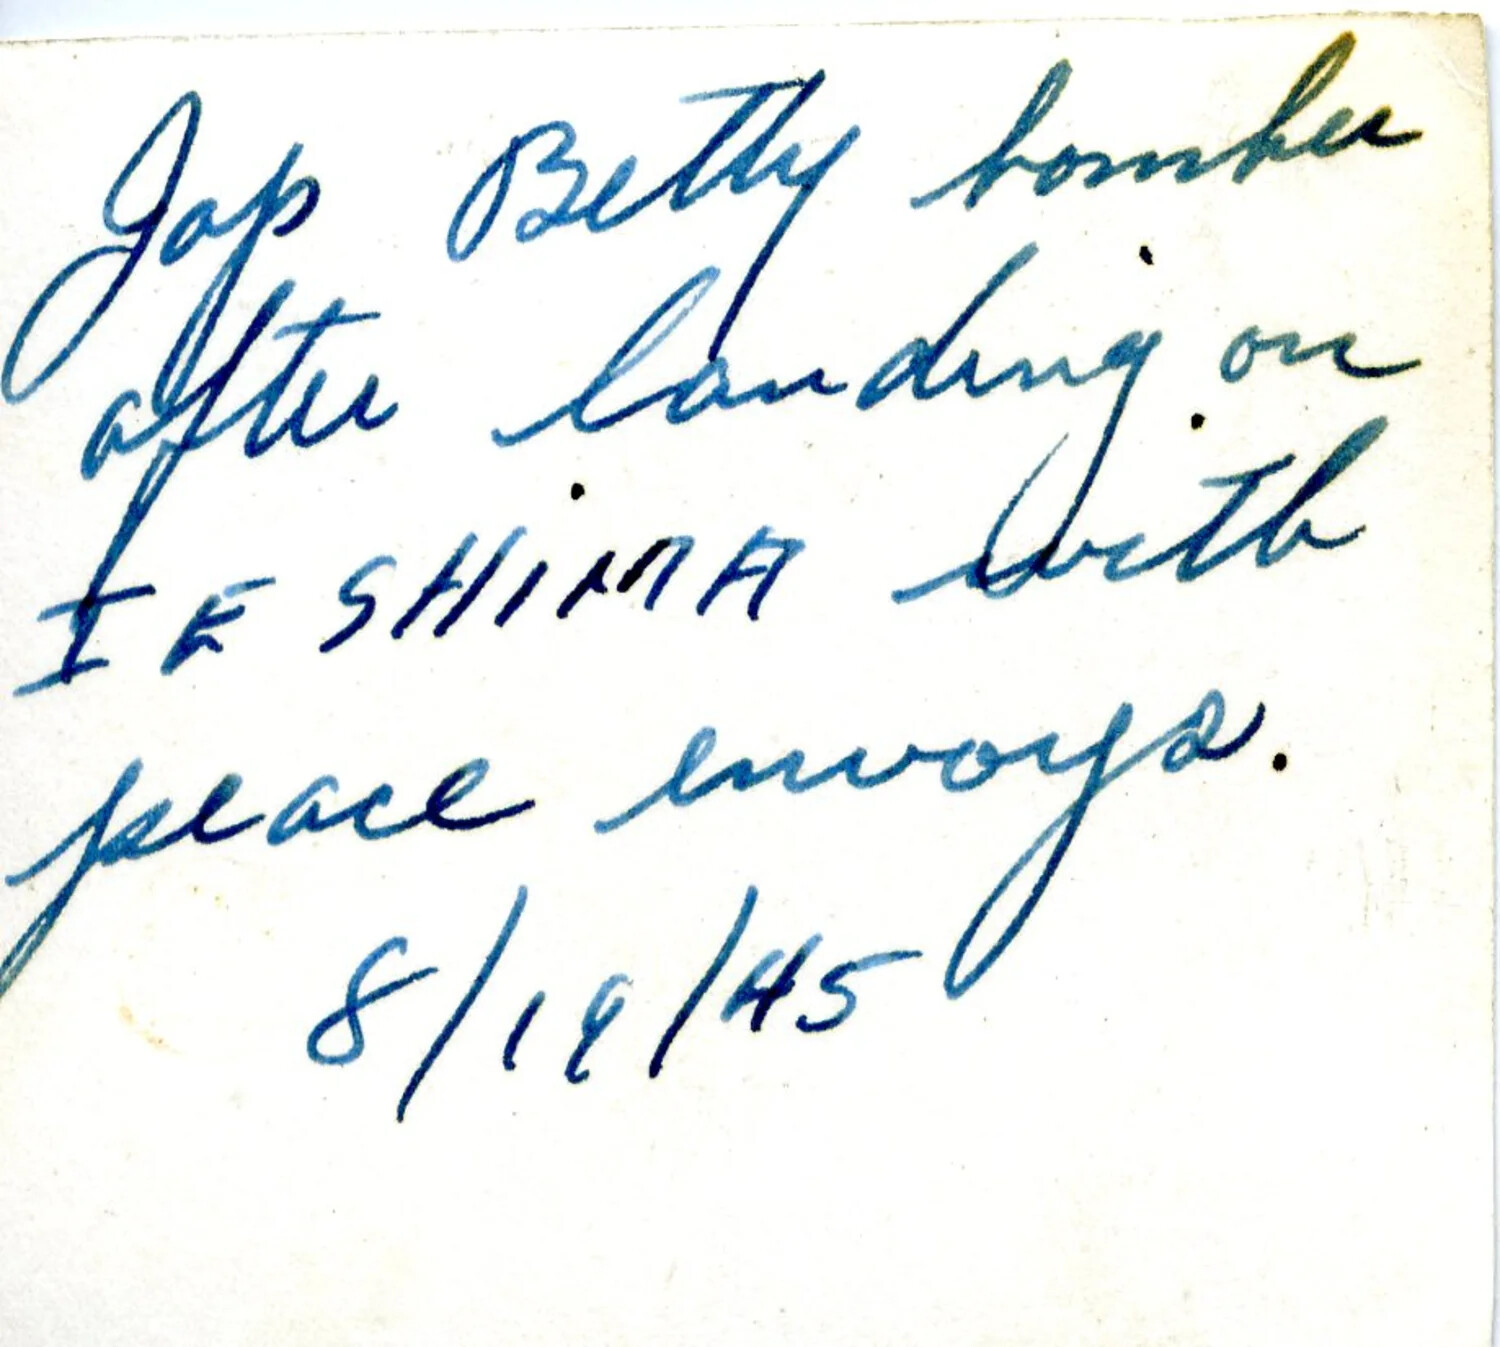 Jap Betty bomber
after landing on
IE SHIMA with
peace envoys.
8/19/45